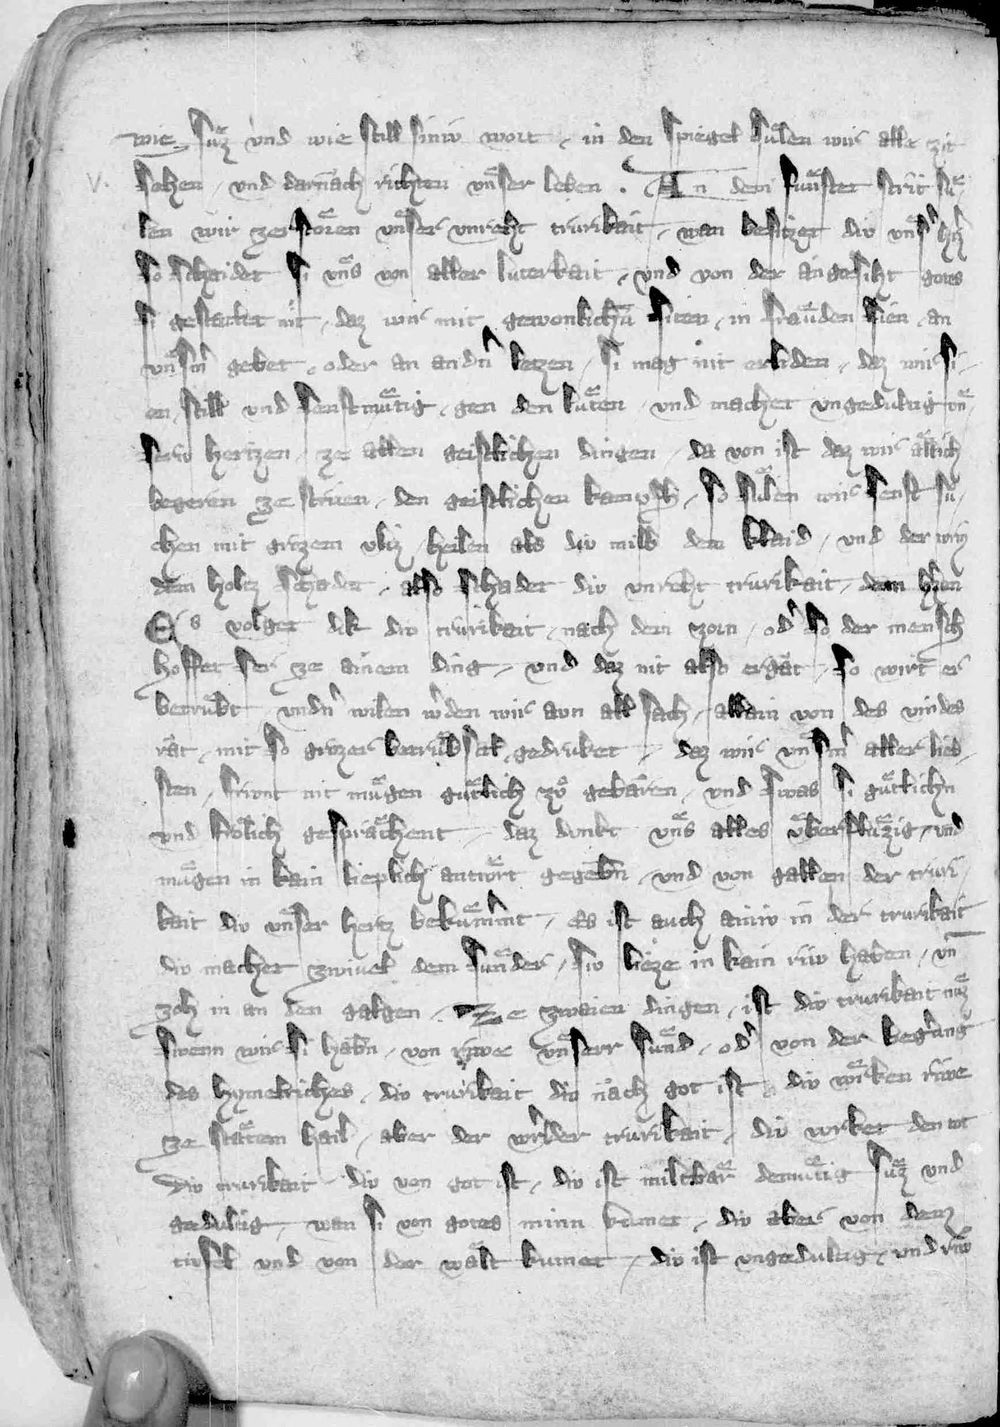 wie suͤz vnd wie still siniv wort / in den spiegel suͤlen wir alle zit
V. sehen / vnd darnach richten vnser leben . An dem fuͤnften strit suͤ
len wir zerstoͤren vnser vnreht trurikait / wan besitzet div vnser hertz
so schaidet si vns von aller luterkait / vnd von der angesiht gotes
si gestatet nit / daz wir mit gewonlichen siten / in fraͤuden sien / an
vnserm gebet / oder an andern letzen / si mag nit erliden / daz wir si
en still vnd senftmuͤtig / gen den luͤten / vnd machet vngedultig vn
seriv hertzen / ze allen geistlichen dingen / da von ist daz wir
begeren ze striten / den geistlichen kampf / so suͤlen wir senft su
chen mit grozem vliz / heilen als div milb dem klaid / vnd der wrm
dem holtz schadet / also schadet div vnreht trurikait / dem hertzen
Es volget dik div trurikait / nach dem zorn / oder so der mensch
hoffet ser ze ainem ding / vnd daz nit also ergat / so wirt er
betruͤbt / vnder wilen werden wir aun all sach / allain von des vindes
rat / mit so grozer betruͤbsal gedruket / daz wir vnserm aller lieb
sten / frivnt nit muͤgen guͤtlich zuͦ gebaren / vnd swas si guͤtlichen
vnd froͤlich gespraͤchent / daz dunkt vns alles vͤberfluͤzig / vnd
muͤgen in kain lieplich antwort gegeben / vnd von gallen der truri
kait div vnser hertz bekuͤmmert / Es ist auch ainiv in der trurikait
div machet zwivel dem suͤnder / siv lieze in kain riw haben / vnd
zoh in an den galgen / Ze zwaien dingen / ist div trurikait nuͤz
swenn wir si haben / von riwe vnserr suͤnd / oder von der begerung
des hymelriches / div trurikait div nach got ist / div wirken riwe
ze staͤtem hail / aber der werlder trurikait / div wrket den tot
Div trurikait div von got ist / div ist miltbaͤr demuͤtig suͤz vnd
gedultig / wan si von gotes minn kumet / div aber von dem
tivfel vnd von der waͤlt kumet / div ist vngedultig / vnd